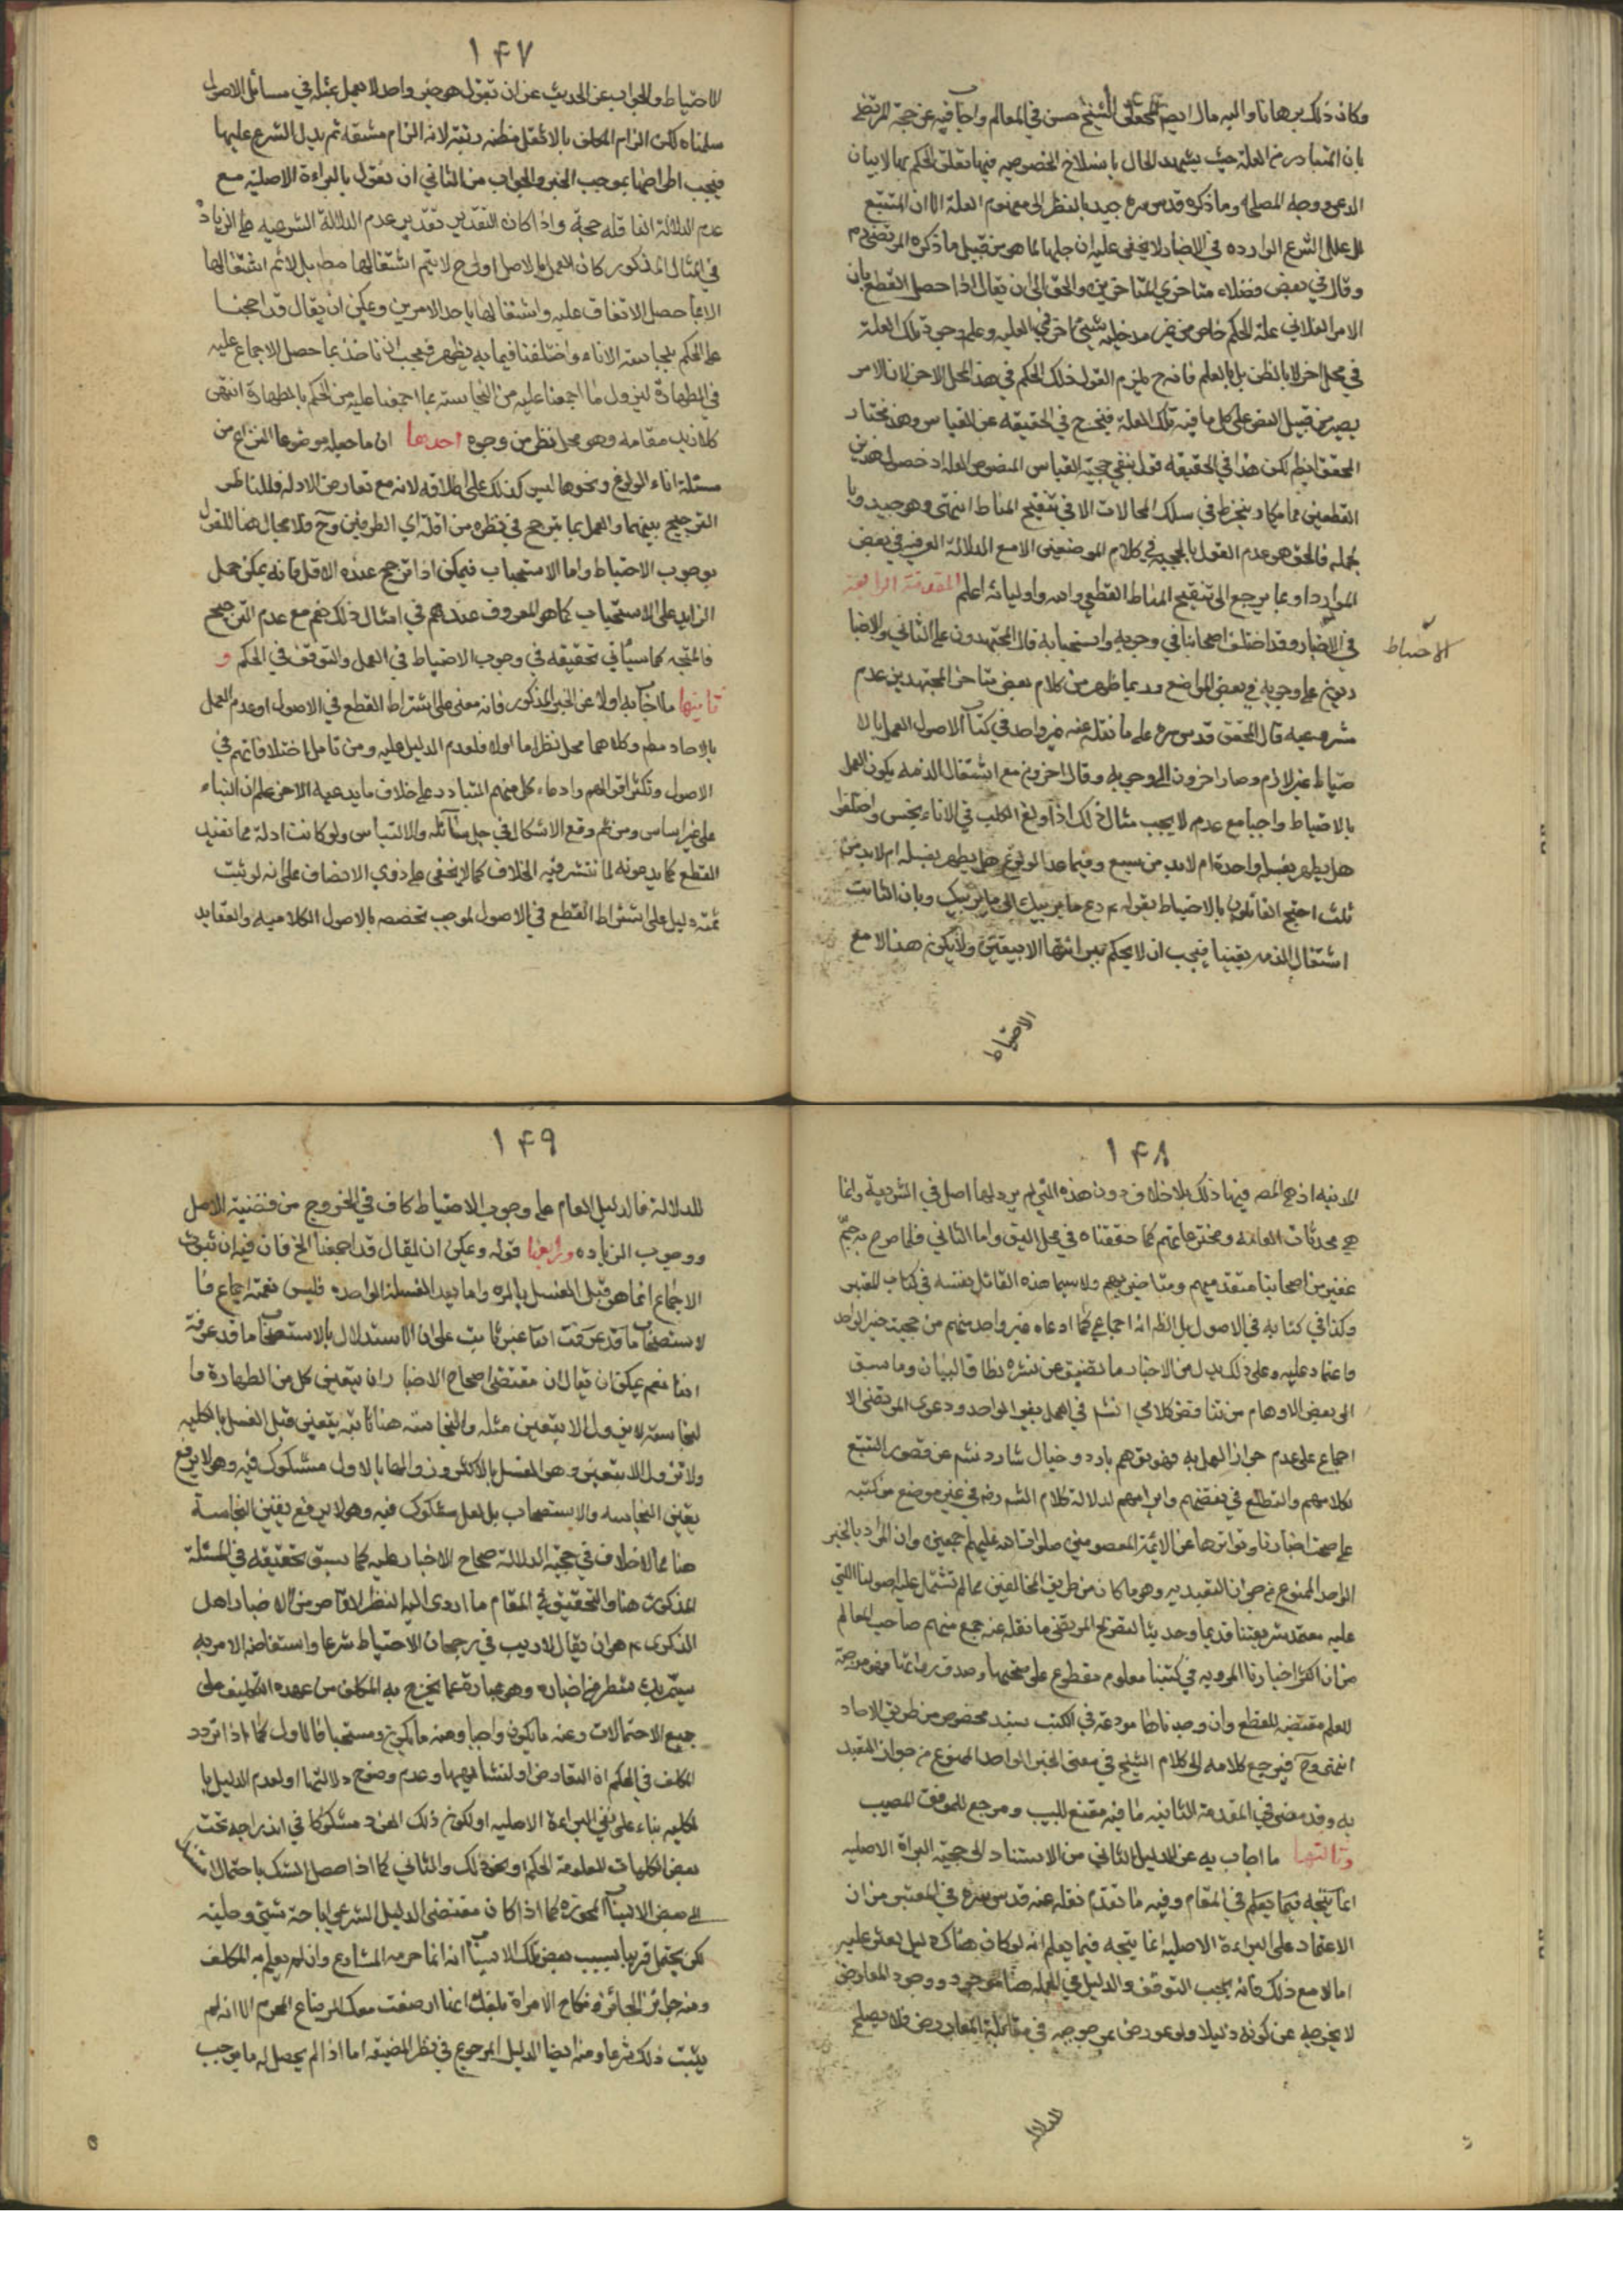 وكان ذلك برهانا واليه مال ايضا المحقق الشيخ حسن في المعالم واجاب فيه عن حجة المرتضى
بان المتبادر من العلة حيث يشهد الحال بانسلاخ الخصوصيه فيها تعلق الحكم بها لا بيان
الداعي ووجه المصلحة وما ذكره قدس سره جيد بالنظر الى مفهوم العلة الا ان المتتبع
لعلل الشرع الوارده في الاخبار لا يخفى عليه ان جلها انما هو من قبيل ما ذكره المرتضى رض
وقال في بعض فضلاء متاخري المتاخرين والحق ان يقال اذا حصل القطع بان
الامر الفلاني علة لحكم خاص من غير مدخلية شيء آخر في العلية وعلم وجود تلك العلة
في محل اخر لا بالظن بل بالعلم فانه ح يلزم القول بذلك الحكم في هذا المحل الاخر لان الامر
يصير من قبيل النص على كل ما فيه تلك العلة فيخرج في الحقيقه عن القياس وهذا مختار
المحقق ايضا لكن هذا في الحقيقه قول بنفي حجية القياس المنصوص العلة اذ حصول هذين
القطعين مما يكاد ينخرط في سلك المحالات الا في تنقيح المناط انتهى وهو جيد وبا
لجمله فالحق هو عدم القول بالحجيه في كلام الموضعين الا مع الدلالة العرفيه في بعض
الموارد او بما يرجع الى تنقيح المناط القطعي والله واوليائه اعلم المقدمة الرابعة
في الاحتياط
في الاخبار وقد اختلف اصحابنا في وجوبه واستحبابه قال المجتهدون على الثاني والاخبا
ريون على وجوبه في بعض المواضع وربما ظهر من كلام بعض متاخري المجتهدين عدم
شرعيته قال المحقق قدس سره على ما نقل عنه غير واحد في كتاب الاصول العمل بالا
حتياط غير لازم وصار اخرون الى وجوبه وقال اخرون مع اشتغال الذمه يكون العمل
بالاحتياط واجبا مع عدمه لا يجب مثال ذلك اذا ولغ الكلب في الاناء نجس واختلفوا
هل يطهر بغسلة واحدة ام لابد من سبع وفيما عدا الولوغ هل يطهر بغسله ام لابد من
ثلث احتج القائلون بالاحتياط بقوله ع دع ما يريبك الى ما لا يريبك وبان الثابت
اشتغال الذمه يقينا فيجب ان لا يحكم ببرائتها الا بيقين ولا يكون هذا الا مع
الاحتياط
١۴٧
الاحتياط والجواب عن الحديث عن ان نقول هو خبر واحد لا يعمل بمثله في مسائل الاصول
سلمناه لكن الزام المكلف بالاثقل مظنه ريبة لانه الزام مشقه لم يدل الشرع عليها
فيجب اطراحها بموجب الخبر والجواب من الثاني ان نقول بالبراءة الاصلية مع
عدم الدلالة الناقله حجة واذا كان التقدير تقدير عدم الدلالة الشرعيه على الزيادة
في المثال المذكور كان العمل بالاصل اولى ح لا يتم اشتغالها مطـ بل لا نم اشتغالها
الا بما حصل الاتفاق عليه واشتغالها باحد الامرين ويمكن ان يقال قد اجمعنا
على الحكم بنجاسة الاناء واختلفنا فيما به يطهر فيجب ان ناخذ بما حصل الاجماع عليه
في الطهارة ليزول ما اجمعنا عليه من النجاسة بما اجمعنا عليه من الحكم بالطهارة انتهى
كلامه زيد مقامه وهو محل نظر من وجوه احدها ان ما جعله موضوعا للنزاع من
مسئلة اناء الولوغ ونحوها ليس كذلك على اطلاقه لانه مع تعارض الادله فللناظر
الترجيح بينهما والعمل بما ترجح في نظره من ادلة اي الطرفين وح فلا مجال هنا للقول
بوجوب الاحتياط واما الاستحباب فيمكن اذا ترجح عنده الاقل فانه يمكن حمل
الزايد على الاستحباب كما هو المعروف عندهم في امثال ذلك نعم مع عدم الترجيح
فالمتجه كما سياتي تحقيقه في وجوب الاحتياط في العمل والتوقف في الحكم و
ثانيها ما اجاب به اولا عن الخبر المذكور فانه مبني على اشتراط القطع في الاصول او عدم العمل
بالاحاد مطـ وكلاهما محل نظر اما اولا فلعدم الدليل عليه ومن تامل اختلافاتهم في
الاصول وتكثر اقوالهم وادعاء كل منهم التبادر على خلاف ما يدعيه الاخر علم ان البناء
على غير اساس ومن ثم وقع الاشكال في جل مسائله والالتباس ولو كانت ادلة مما تفيد
القطع كما يدعونه لما انتشر فيه الخلاف كما لا يخفى على ذوي الانصاف على انه لو ثبت
ثمة دليل على اشتراط القطع في الاصول لوجب تخصيصه بالاصول الكلاميه والعقايد
١۴٨
الدينيه اذ هي المصرح فيها ذلك بلا خلاف دون هذه التي لم يرد لها اصل في الشريعة وانما
هي محدثات العامة ومخترعاتهم كما حققناه في محل اليق واما الثاني فلما صرح به جم
غفير من اصحابنا متقدميهم ومتاخريهم ولا سيما هذه القائل بنفسه في كتاب المعتبر
وكذا في كتابه في الاصول بل الظ انه اجماعي كما ادعاه غير واحد منهم من حجية خبر الواحد
والاعتماد عليه وعلى ذلك يدل من الاخبار ما يضيق عن نشره نطاق البيان وما سبق
الى بعض الاوهام من تناقض كلامي الشيخ في العمل بخبر الواحد ودعوى المرتضى الا
اجماع على عدم جواز العمل به فهو توهم بارد وخيال شارد نشا عن قصور التتبع
لكلامهم والتطلع في نقضهم وابرامهم لدلالة كلام الشيخ رض في غير موضع من كتبه
على صحة اخبارنا وتواترها عن الائمة المعصومين صلوات الله عليهم اجمعين وان المراد بالخبر
الواحد الممنوع من جواز التعبد به وهو ما كان من طريق المخالفين مما لم تشتمل عليه اصولنا التي
عليه معتمد شريعتنا قديما وحديثا لتصريح المرتضى ما نقله عنه جمع منهم صاحب المعالم
من ان اكثر اخبارنا المرويه في كتبنا معلوم مقطوع على صحتها وصدق رواتها فهو موجبة
للعلم مقتضيه للقطع وان وجدناها مودعة في الكتب بسند مخصوص من طريق الاحاد
انتهى وح فيرجع كلامه الى كلام الشيخ في معنى الخبر الواحد الممنوع من جواز التعبد
به وقد مضى في المقدمة الثانيه ما فيه مقنع للبيب ومرجع للموفق المصيب
وثالثها ما اجاب به عن الدليل الثاني من الاستناد الى حجية البراة الاصليه
انما يتجه فيما يعلم في المقام وفيه ما تقدم نقله عنه قدس سره في المعتبر من ان
الاعتماد على البراءة الاصليه انما يتجه فيما يعلم انه لو كان هناك دليل لعثر عليه
اما لا مع ذلك فانه يجب التوقف والدليل في الجمله هنا موجود ووجود المعارض
لا يخرجه عن كونه دليلا ولو عورض بمرجوحه في مقابلة المعارض فلا يصلح
للدلالة
١۴٩
للدلالة فالدليل العام على وجوب الاحتياط كاف في الخروج من قضية الاصل
ووجوب الزياده ورابعها قوله ويمكن ان يقال قد اجمعنا الخ فان فيه ان ثبوت
الاجماع انما هو قبل الغسل بالمره واما بعد الغسلة الواحده فليس ثمة اجماع فا
لاستصحاب ما قد عرفت انفا غير ثابت على ان الاستدلال بالاستصحاب ما قد عرفته
انفا نعم يمكن ان يقال ان مقتضى صحاح الاخبار ان يقين كل من الطهارة وا
لنجاسة لا يزول الا بيقين مثله والنجاسة هنا ثابته بيقين قبل الغسل بالكليه
ولا تزول الا بيقين وهو الغسل بالاكثر وزوالها بالاول مشكوك فيه وهو لا يرفع
يقين النجاسه والاستصحاب بل لعل مشكوك فيه وهو لا يرفع يقين النجاسة
هنا مما لا خلاف في حجيته الدلالة صحاح الاخبار عليه كما سبق تحقيقه في المسئلة
المذكورة هنا والتحقيق في المقام ما ادى اليه النظر القاصر من الاخبار اهل
الذكر ع هو ان يقال لا ريب في رجحان الاحتياط شرعا واستفاضة الامر به
سيمر بك شطر من اخباره وهو عبارة عما يخرج به المكلف من عهدة التكليف على
جميع الاحتمالات ومنه ما يكون واجبا ومنه ما يكون مستحبا فالاول كما اذا تردد
المكلف في الحكم اما لتعارض ادلته لتشابهها وعدم وضوح دلالتها او لعدم الدليل با
لكليه بناء على نفي البراءة الاصليه او لكون ذلك الفرد مشكوكا في اندراجه تحت
بعض الكليات المعلومة الحكم او نحو ذلك والثاني كما اذا حصل الشك باحتمال
بعض الاسباب المجوزه كما اذا كان مقتضى الدليل الشرعي اباحة شيء وحليته
لكن يحتمل قريبا بسبب بعض تلك الاسباب انه انما حرمه الشارع وان لم يعلم به المكلف
ومنه جوائز الجائر ونكاح الامراة بلغك انها ارضعت معك الرضاع المحرم الا انه لم
يثبت ذلك شرعا ومنه ايضا الدليل المرجوح في نظر الفقيه اما اذا لم يحصل له ما يوجب